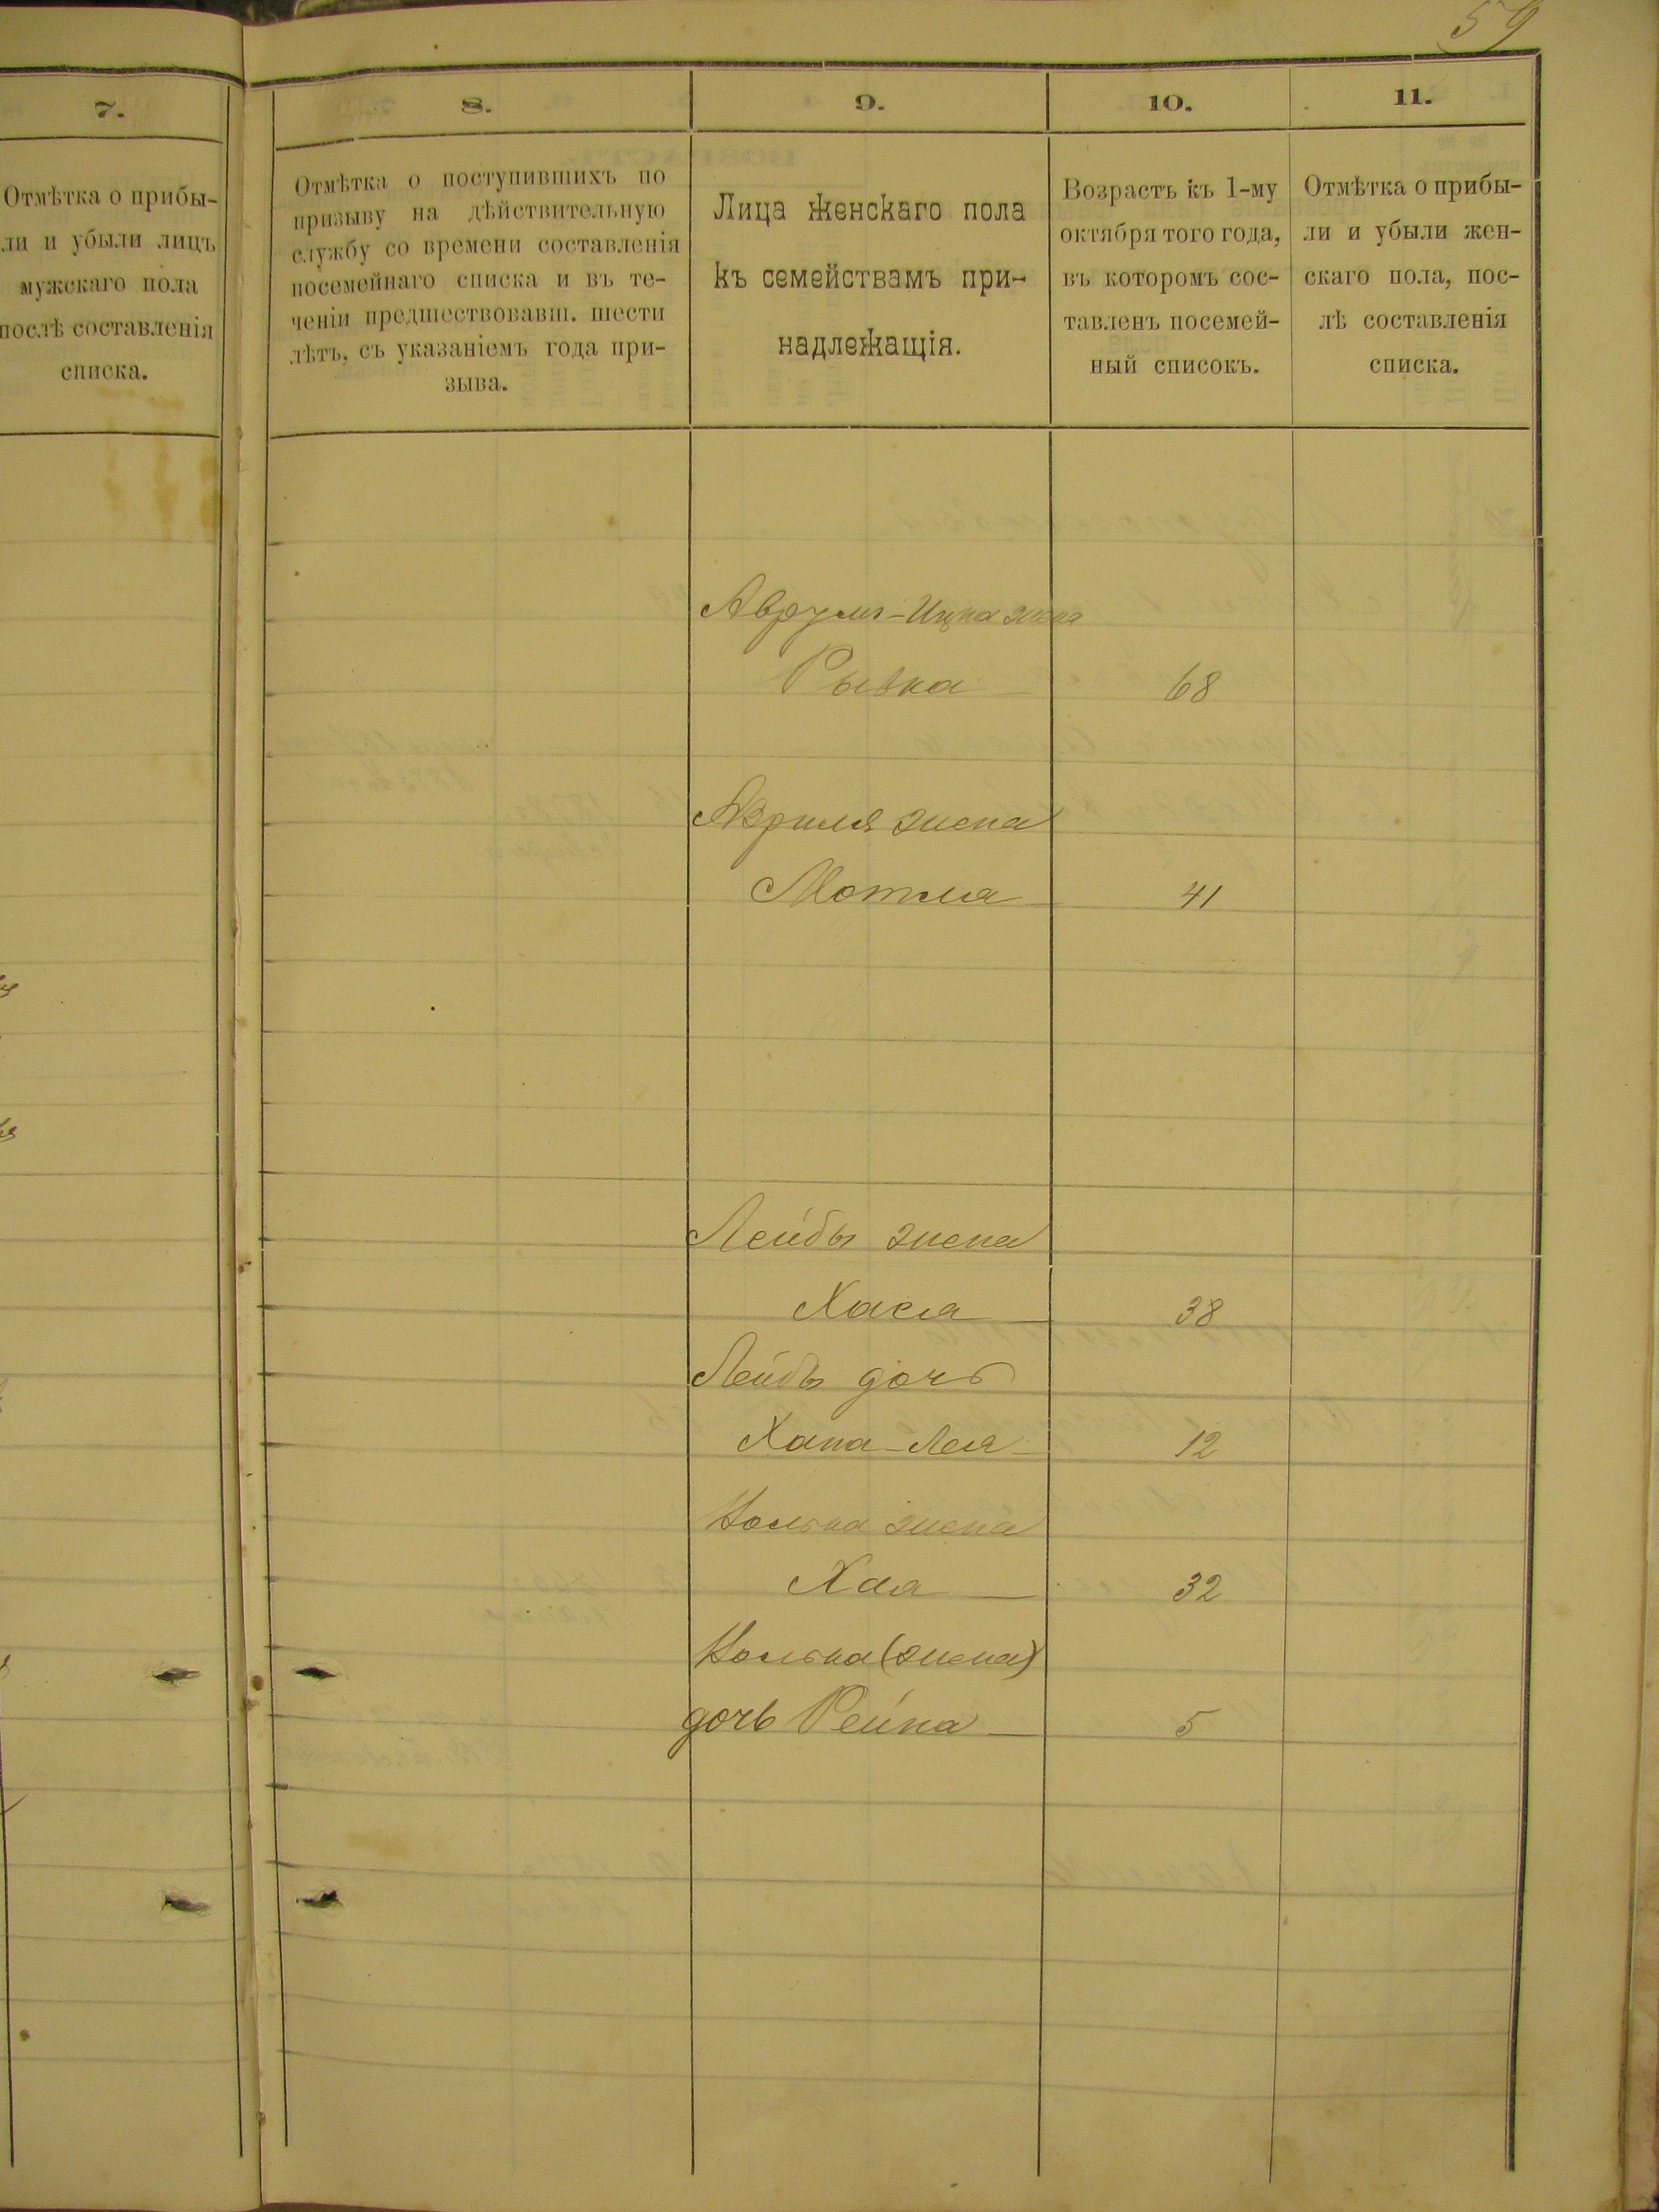 59
7.
Отмѣтка о прибы-
ли и убыли лицъ
мужскаго пола
послѣ составленія
списка.
8.
Отмѣтка о поступившихъ по
призыву на дѣйствительную
службу со времени составленія
посемейнаго списка и въ те-
ченіи предшествовавш. шести
лѣтъ, съ указаніемъ года при-
зыва.
9.
Лица женскаго пола
къ семействамъ при-
надлежащія.
10.
Возрастъ къ 1-му
октября того года,
въ которомъ сос-
тавленъ посемей-
ный списокъ.
11.
Отмѣтка о прибы-
ли и убыли жен-
скаго пола, пос-
лѣ составленія
списка.
Аврумъ-Ицка жена
Рывка 68
жена
Мотля 41
Лейбы жена
Хася 38
Лейбы дочь
Хана-Лея 12
жена
Хая 32
(жена)
дочь Рейна 5